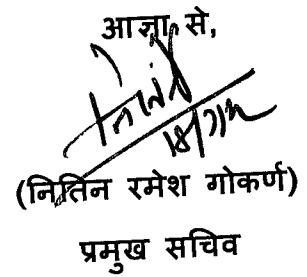 आज्ञा से,
(नितिन रमेश गोकर्ण)
प्रमुख सचिव